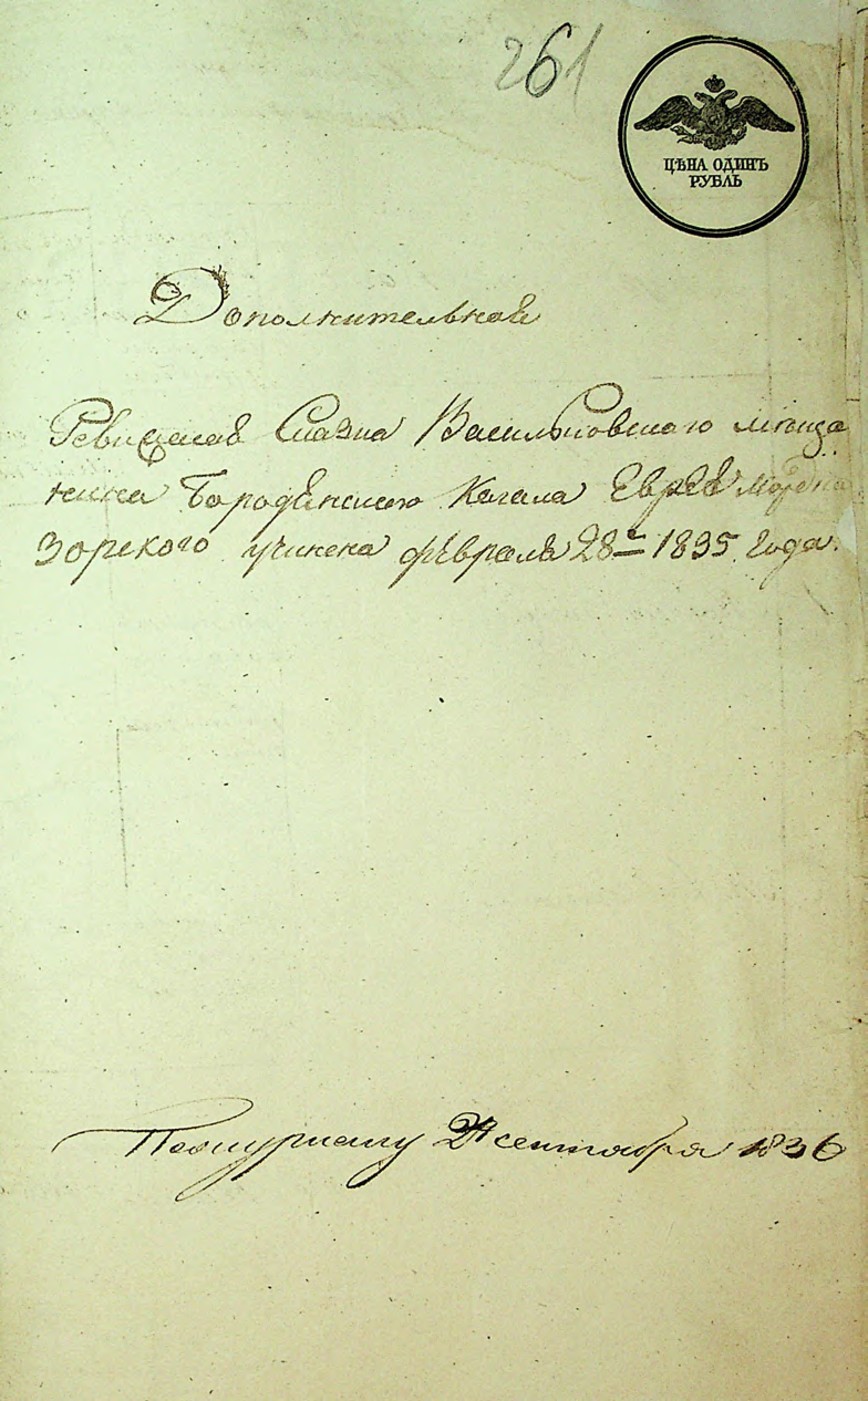 261
ЦѢНА ОДИНЪ
РУБЛЬ
Дополнительная
Ревизская Сказка Васильковского меща
нина Городянского Кагала Еврея
Зорекого учинена февраля 28го 1835 года.
сентября 1836